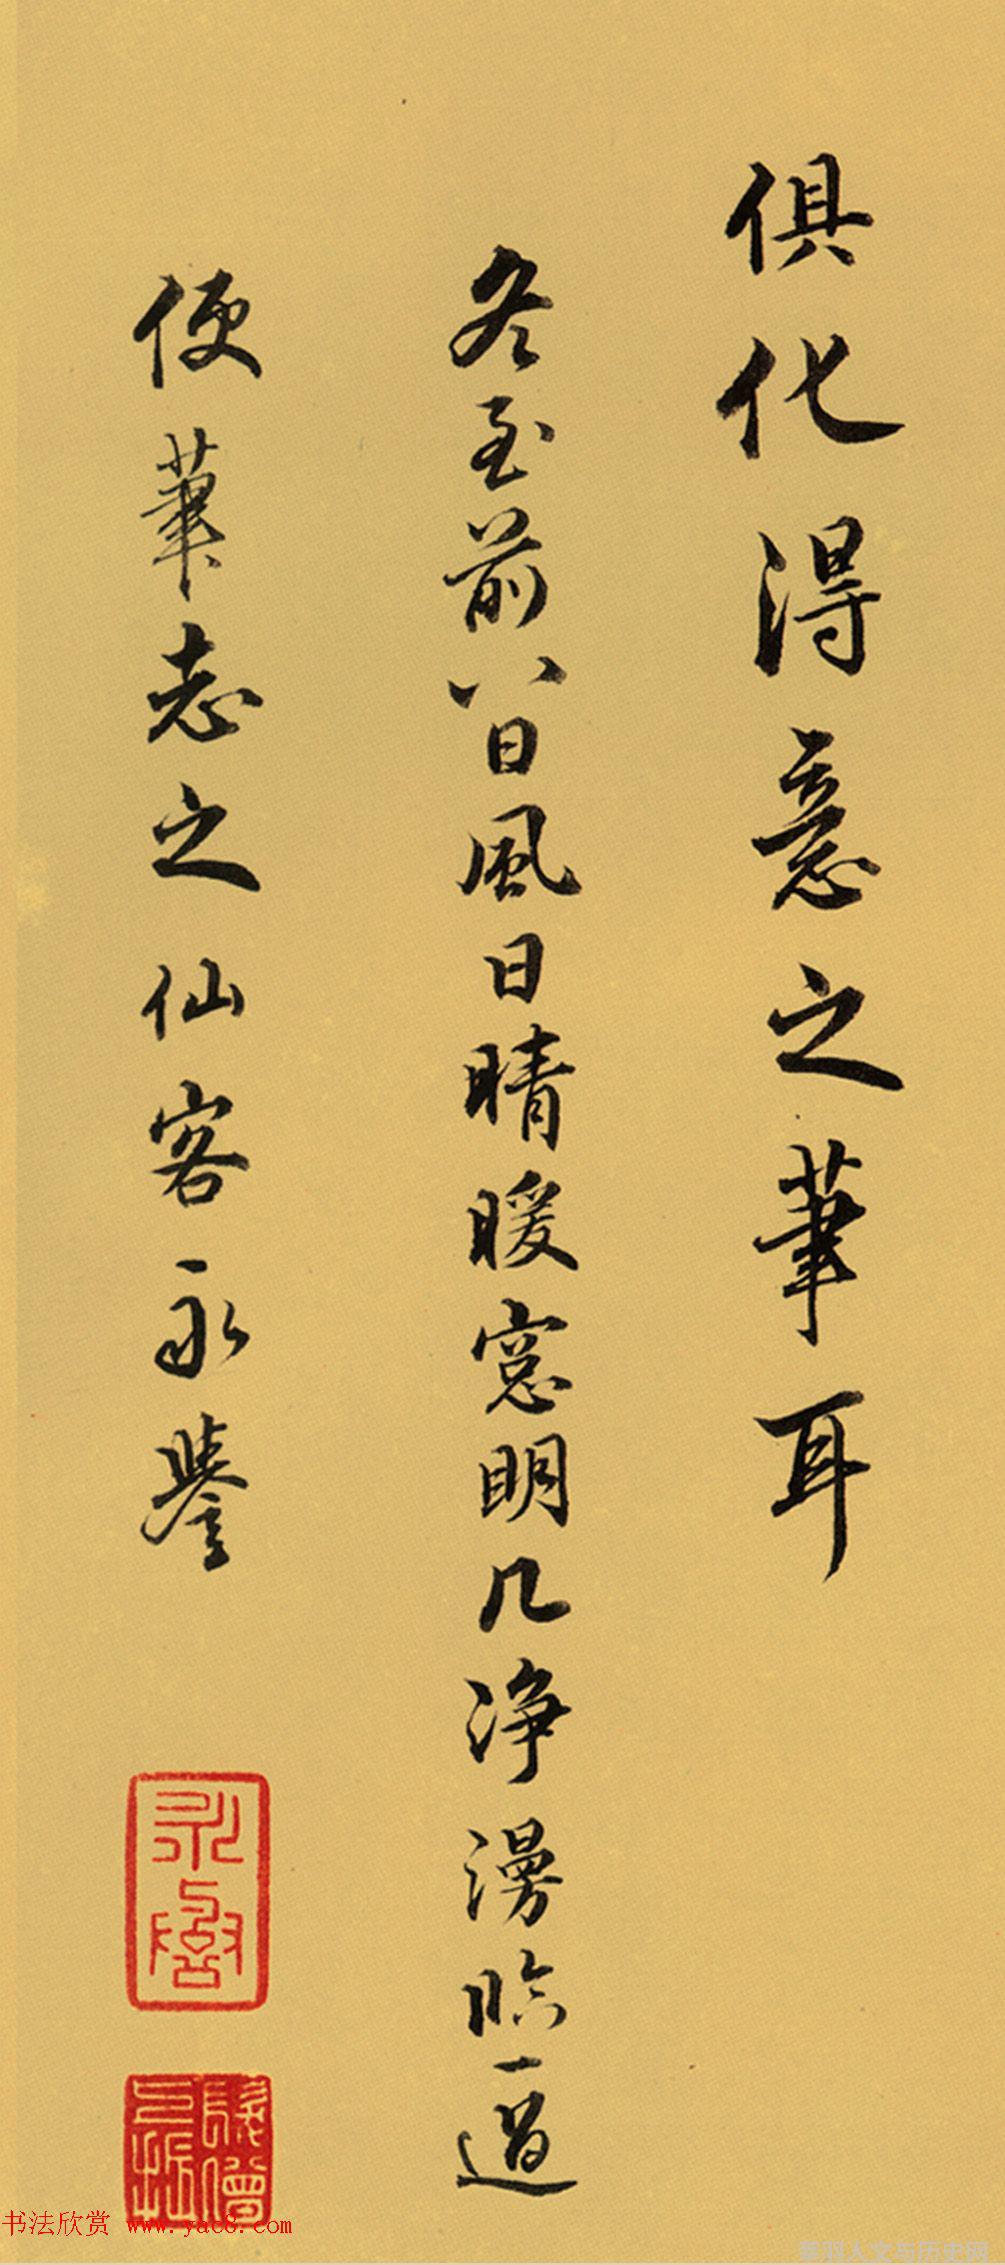 俱化得意之筆耳
冬至前八日風日晴暖窓明几浄漫臨一過
便筆志之仙客永譽
书法欣赏 www.yac8.com
人文与历史网